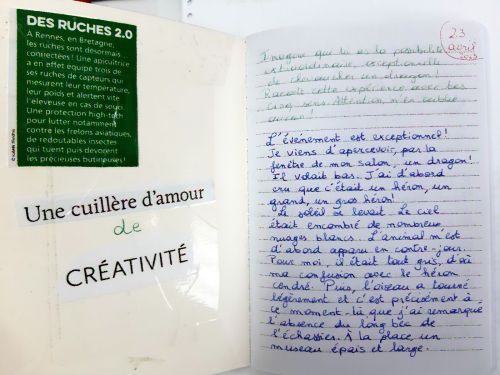 DES RUCHES 2.0
À Rennes, en Bretagne,
les ruches sont désormais
connectées ! Une apicultrice
a en effet équipé trois de
ses ruches de capteurs qui
mesurent leur température,
leur poids et alertent vite
l'éleveuse en cas de souci.
Une protection high-tech
pour lutter notamment
contre les frelons asiatiques,
de redoutables insectes
qui tuent puis dévorent
les précieuses butineuses !
Une cuillère d'amour
de
CRÉATIVITÉ
23
avril
Imagine que tu as la possibilité
extraordinaire, exceptionnelle
de chevaucher un dragon !
Raconte cette expérience avec tes
cinq sens. Attention, n'en oublie
aucun !
L'événement est exceptionnel !
Je viens d'apercevoir, par la
fenêtre de mon salon, un dragon !
Il volait bas. J'ai d'abord
cru que c'était un héron, un
grand, un gros héron !
Le soleil se levait. Le ciel
était encombré de nombreux
nuages blancs. L'animal m'est
d'abord apparu en contre-jour.
Pour moi, il était tout gris, d'où
ma confusion avec le héron
cendré. Puis, l'oiseau a tourné
légèrement et c'est précisément à
ce moment-là que j'ai remarqué
l'absence du long bec de
l'échassier. À la place, un
museau épais et large.